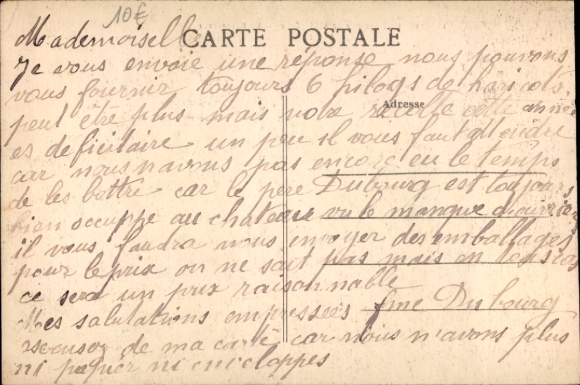 10€
CARTE POSTALE
Adresse
Mademoiselle
Je vous envoie une réponse nous pouvons
vous fournir toujours 6 kilogs de haricots
peut être plus mais notre récolte cette année
es deficitaire un peu il vous faut attendre
car nous navons pas encore eu le temps
de les battre car le père Dubourg est toujours
bien occuppe au chateau vu le manque d'ouvriers
il vous faudra nous envoyer des emballages
pour le prix on ne sait pas mais en tous cas
ce sera un prix raisonnable
Mes salutations empressées fme Dubourg
excuser de ma carte car nous n'avons plus
ni papier ni enveloppes